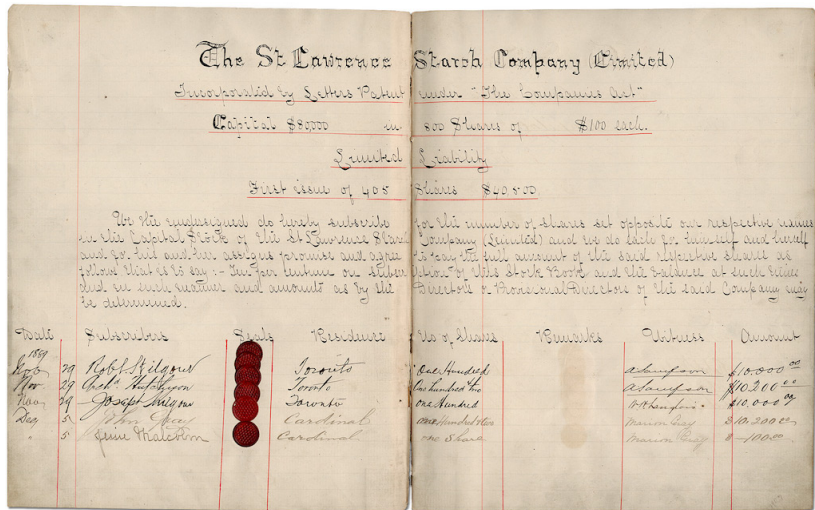 The St Lawrence Starch Company (Limited)
Incorporated by Letters Patent under "The Companies Act"
Capital $80,000 in 800 Shares of $100 each.
Limited Liability
First issue of 405 Shares $40,500
We the undersigned do hereby subscribe for the number of shares set opposite our respective names
in the Capital Stock of the St Lawrence Starch Company (Limited) and we do each for himself and herself
and for his and her assigns promise and agree to pay the full amount of the said respective shares as
follows that is to say :- Ten per centum on subscription of this Stock Book and the balance at such times
and in such manner and amounts as by the Directors or Provisional Directors of the said Company may
be determined.
Date Subscribers Seals Residence No of Shares Remarks Witness Amount
1889
Nov 29 Robt Kilgour Toronto One Hundred $10,000 00
Nov. 29 Hutchison Toronto One hundred two $10,200 00
Nov 29 Joseph Kilgour Toronto One Hundred $10,000 00
Dec 5 John Gray Cardinal One Hundred two Marion Gray $10,200 00
" 5 Malcolm Cardinal One Share Marion Gray $ -100.00